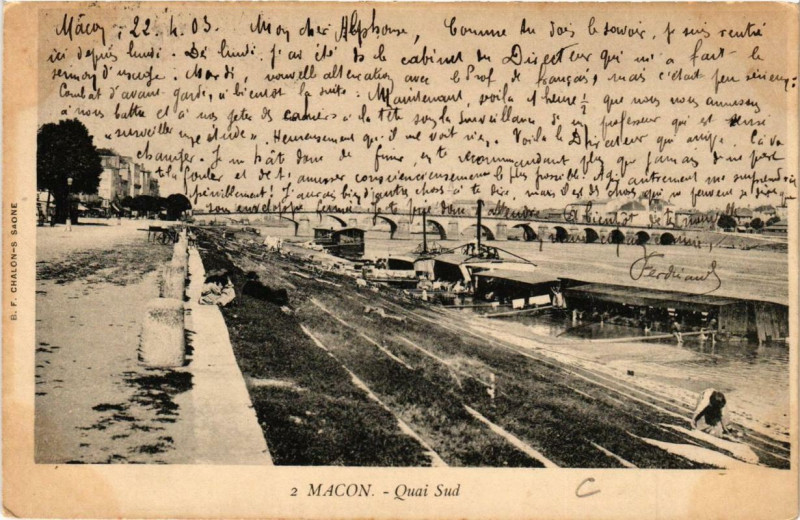 Mâcon, 22.4.03. Mon cher Alphonse, Comme tu dois le savoir, je suis rentré
ici depuis lundi. Dès lundi, j'ai été ds le cabinet du Directeur qui m'a fait le
sermon d'usage. Mardi, nouvelle altercation avec le Prof de français, mais c'était peu sérieux:
Combat d'avant-garde, à bientôt la suite. Maintenant, voilà 1 heure ½ que nous nous amusons
à nous battre et à nous jeter des à la tête sous la surveillance d'un professeur qui est censé
"surveiller une étude". Heureusement qu'il ne voit rien. Voilà le Directeur qui arrive. Ça va
chauffer. Je me hâte donc de finir, en te recommandant plus que jamais de ne pas
te la fouler et de t'amuser consciencieusement le plus possible. Agir autrement me surprendrait
péniblement! J'aurais bien d'autres choses à te dire, mais des choses qui ne peuvent se dire que
sous enveloppe fermée. A bientôt de tes nouvelles
Ferdinand
B. F. CHALON-S-SAONE
2 MACON. - Quai Sud
C